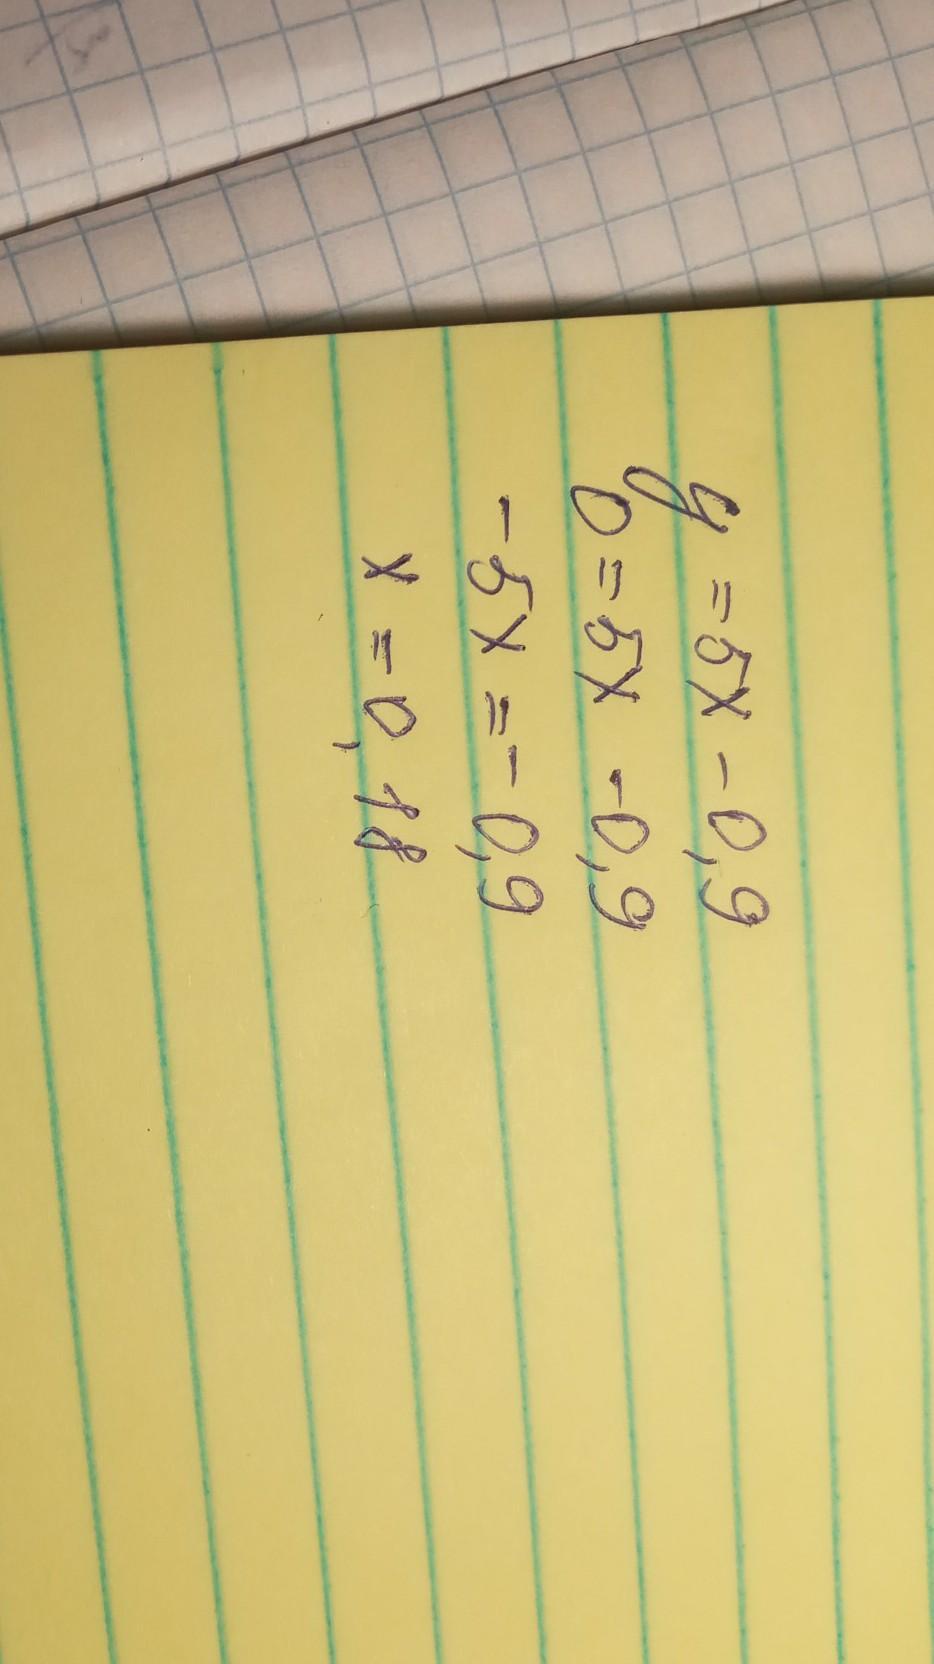 y = 5x - 0,9
0 = 5x - 0,9
-5x = - 0,9
x = 0,18